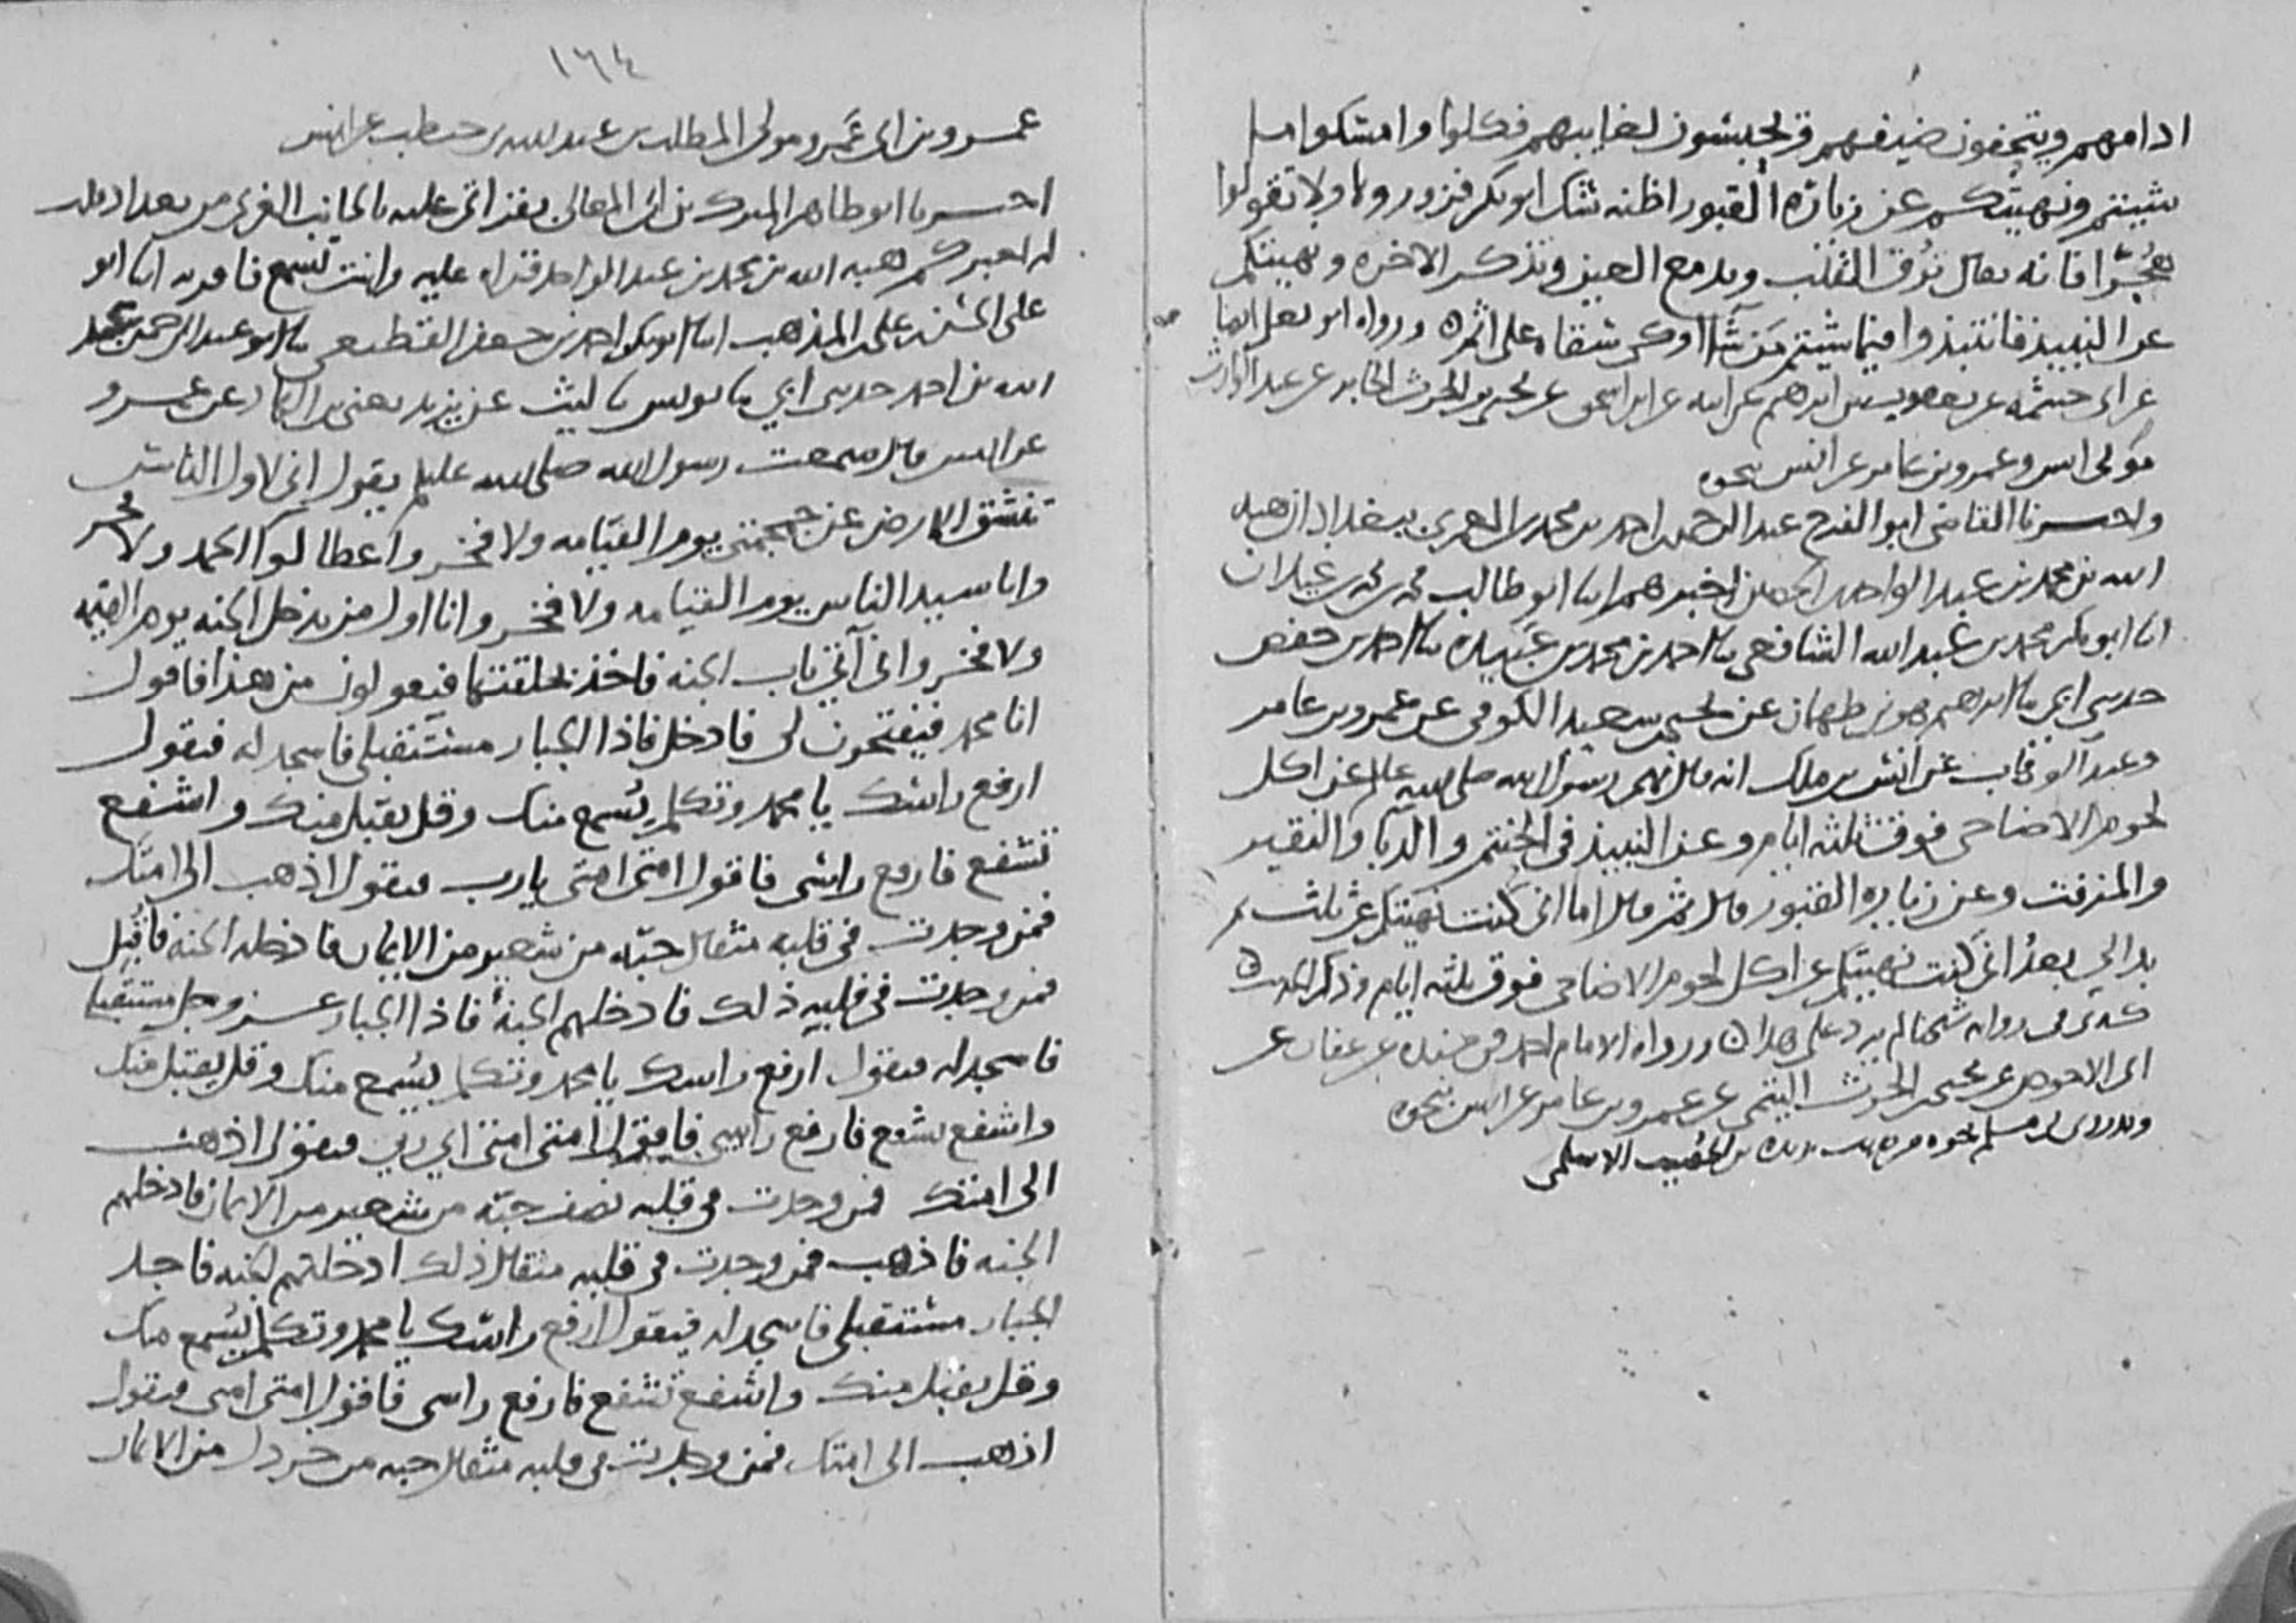 ادامهم ويتحفون ضيفهم ويحبسون لغايبهم فكلوا وامسكوا ما
شيتم ونهيتكم عن زيارة القبور اظنه شك ابو بكر فزوروها ولا تقولوا
هجرا فانه يعنى ترق القلب وتدمع العين وتذكر الاخره ونهيتكم
عن النبيذ فانتبذوا فيما شيتم من شا اوكى سقاه على اثم ورواه ابو يعلى ايضا
عن ابى خيثمه عن يعقوب بن ابرهيم عن ابيه عن ابن اسحق عن يحيى بن الحرث الجابر عن عبد الوارث
مولى انس وعمرو بن عامر عن انس بنحوه
واخبرنا القاضى ابو الفرج عبد الرحمن بن احمد بن محمد بن العمرى ببغداد ان هبه
الله بن محمد بن عبد الواحد بن الحصين اخبرهم ابنا ابو طالب محمد بن محمد بن غيلان
انا ابو بكر محمد بن عبد الله الشافعى نا احمد بن محمد بن عبيده نا احمد بن حفص
حدثنى ابى نا ابرهيم هو بن طهمان عن يحيى بن سعيد الكوفى عن عمرو بن عامر
وعبد الوارث عن انس بن ملك انه قال نهى رسول الله صلى الله عليه عن اكل
لحوم الاضاحى فوق ثلثه ايام وعن النبيذ فى الحنتم والدبا والنقير
والمزفت وعن زياره القبور قال ثم قال اما انى كنت نهيتكم عن ثلث ثم
بدا لى بعد انى كنت نهيتكم عن اكل لحوم الاضاحى فوق ثلثه ايام وذكر الحديث
كذى فى روايه شيخنا لم يزد على هذا ورواه الامام احمد فى مسنده عن عفان عن
ابى الاحوص عن يحيى بن الحرث التيمى عن عمرو بن عامر عن انس بنحوه
وقد روى مسلم نحوه من حديث بريده بن الحصيب الاسلمى
١٦٤
عمرو بن ابى عمرو مولى المطلب بن عبد الله بن حنطب عن انس
اخبرنا ابو طاهر المبرك بن ابى المعالى بقراتى عليه بالجانب الغربى من بغداد قلت
له اخبركم هبه الله بن محمد بن عبد الواحد قراه عليه وانت تسمع فاقر به ابنا ابو
على الحسن بن على بن المذهب ابنا ابو بكر احمد بن جعفر القطيعى نا ابو عبد الرحمن عبد
الله بن احمد حدثنى ابى نا يونس نا ليث عن يزيد يعنى بن الهاد عن عمرو
عن انس قال سمعت رسول الله صلى الله عليه يقول انى لاول الناس
تنشق الارض عن جمجمتى يوم القيامه ولا فخر واعطا لوا الحمد ولا فخر
وانا سيد الناس يوم القيامه ولا فخر وانا اول من يدخل الجنه يوم القيمه
ولا فخر وانى آتى باب الجنه فاخذ بحلقتها فيقولون من هذا فاقول
انا محمد فيفتحون لى فادخل فاذا الجبار مستقبلى فاسجد له فيقول
ارفع راسك يا محمد وتكلم يسمع منك وقل يقبل منك واشفع
تشفع فارفع راسى فاقول امتى امتى يا رب فيقول اذهب الى امتك
فمن وجدت فى قلبه مثقال حبه من شعير من الايمان فادخله الجنه فاقبل
فمن وجدت فى قلبه ذلك فادخلهم الجنه فاذا الجبار عز وجل مستقبلى
فاسجد له فيقول ارفع راسك يا محمد وتكلم يسمع منك وقل يقبل منك
واشفع تشفع فارفع راسى فاقول امتى امتى اى رب فيقول اذهب
الى امتك فمن وجدت فى قلبه نصف حبه من شعير من الايمان فادخلهم
الجنه فاذهب فمن وجدت فى قلبه مثقال ذلك ادخلتهم الجنه فاجد
الجبار مستقبلى فاسجد له فيقول ارفع راسك يا محمد وتكلم يسمع منك
وقل يقبل منك واشفع تشفع فارفع راسى فاقول امتى امتى فيقول
اذهب الى امتك فمن وجدت فى قلبه مثقال حبه من خردل من الايمان